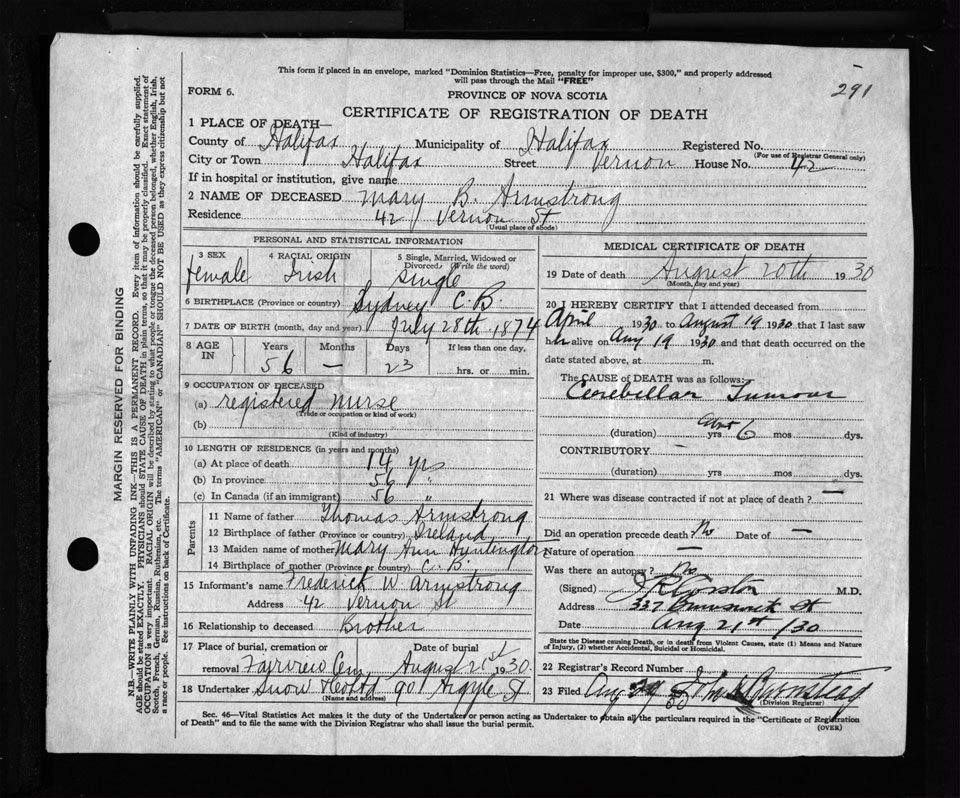 This form if placed in an envelope, marked "Dominion Statistics—Free, penalty for improper use, $300," and properly addressed
will pass through the Mail "FREE"
291
FORM 6.
PROVINCE OF NOVA SCOTIA
CERTIFICATE OF REGISTRATION OF DEATH
1 PLACE OF DEATH—
County of Halifax Municipality of Halifax Registered No.
(For use of Registrar General only)
City or Town Halifax Street Vernon House No. 42
If in hospital or institution, give name
2 NAME OF DECEASED Mary B. Armstrong
Residence 42 Vernon St
(Usual place of abode)
PERSONAL AND STATISTICAL INFORMATION
3 SEX 4 RACIAL ORIGIN 5 Single, Married, Widowed or Divorced (Write the word)
female Irish Single
6 BIRTHPLACE (Province or country) Sydney C.B.
7 DATE OF BIRTH (month, day and year) July 28th 1874
8 AGE IN Years Months Days If less than one day,
56 — 23 hrs. or min.
9 OCCUPATION OF DECEASED
(a) registered nurse
(Trade or occupation or kind of work)
(b)
(Kind of industry)
10 LENGTH OF RESIDENCE (in years and months)
(a) At place of death 14 yrs
(b) In province 56 "
(c) In Canada (if an immigrant) 56 "
Parents
11 Name of father Thomas Armstrong
12 Birthplace of father (Province or country) Ireland
13 Maiden name of mother Mary Ann Huntington
14 Birthplace of mother (Province or country) C.B.
15 Informant's name Frederick W. Armstrong
Address 42 Vernon St
16 Relationship to deceased Brother
17 Place of burial, cremation or removal Fairview Cem Date of burial August 21st 1930.
18 Undertaker Snow & Co Ltd 90 Argyle St
(Name and address)
MEDICAL CERTIFICATE OF DEATH
19 Date of death August 20th 1930
(Month, day and year)
20 I HEREBY CERTIFY that I attended deceased from
April 1930 to August 19 1930 that I last saw
h alive on Aug 19 1930 and that death occurred on the
date stated above, at m.
The CAUSE of DEATH was as follows:
Cerebellar Tumour
(duration) yrs 6 mos dys.
CONTRIBUTORY
(duration) yrs mos dys.
21 Where was disease contracted if not at place of death? —
Did an operation precede death? No Date of —
Nature of operation —
Was there an autopsy? No
(Signed) M.D.
Address 337 Brunswick St
Date Aug 21st /30
State the Disease causing Death, or in death from Violent Causes, state (1) Means and Nature
of Injury, (2) whether Accidental, Suicidal or Homicidal.
22 Registrar's Record Number
23 Filed Aug 29 30
(Division Registrar)
Sec. 46—Vital Statistics Act makes it the duty of the Undertaker or person acting as Undertaker to obtain all the particulars required in the "Certificate of Registration
of Death" and to file the same with the Division Registrar who shall issue the burial permit.
(OVER)
MARGIN RESERVED FOR BINDING
N.B.—WRITE PLAINLY WITH UNFADING INK—THIS IS A PERMANENT RECORD. Every item of information should be carefully supplied.
AGE should be stated EXACTLY. PHYSICIANS should STATE CAUSE OF DEATH in plain terms, so that it may be properly classified. Exact statement of
OCCUPATION is very important. RACIAL ORIGIN will be described by stating to what people or tongue the deceased person belonged, whether English, Irish,
Scotch, French, German, Russian, Ruthenian, etc. The terms "AMERICAN" or "CANADIAN" SHOULD NOT BE USED as they express citizenship but not
a race or people. See instructions on back of Certificate.